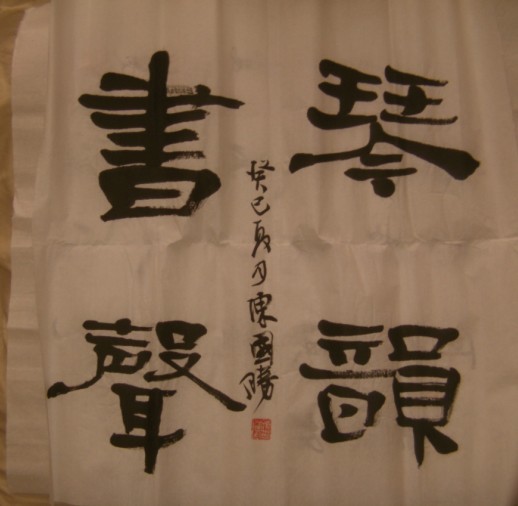 琴韻
書聲
癸巳夏月陳國勝